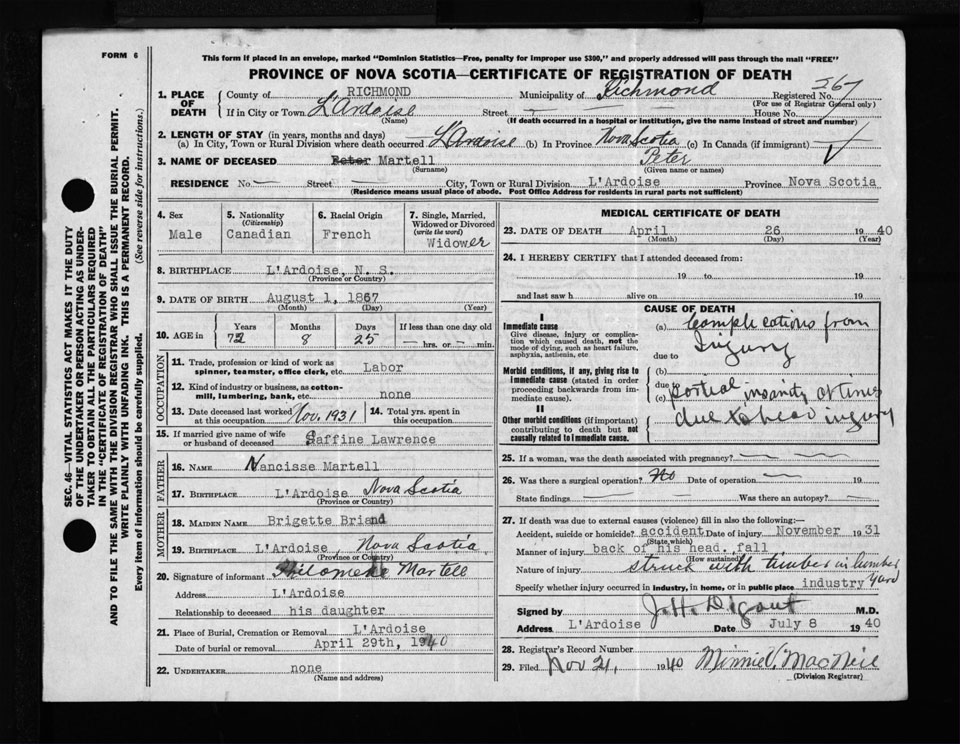 FORM 6
This form if placed in an envelope, marked "Dominion Statistics—Free, penalty for improper use $300," and properly addressed will pass through the mail "FREE"
PROVINCE OF NOVA SCOTIA—CERTIFICATE OF REGISTRATION OF DEATH
SEC. 46—VITAL STATISTICS ACT MAKES IT THE DUTY
OF THE UNDERTAKER OR PERSON ACTING AS UNDER-
TAKER TO OBTAIN ALL THE PARTICULARS REQUIRED
IN THE "CERTIFICATE OF REGISTRATION OF DEATH"
AND TO FILE THE SAME WITH THE DIVISION REGISTRAR WHO SHALL ISSUE THE BURIAL PERMIT.
WRITE PLAINLY WITH UNFADING INK. THIS IS A PERMANENT RECORD.
Every item of information should be carefully supplied. (See reverse side for instructions.)
1. PLACE OF DEATH County of RICHMOND Municipality of Richmond Registered No. 267
(For use of Registrar General only)
If in City or Town L'Ardoise Street — — House No. —
(Name) (If death occurred in a hospital or institution, give the name instead of street and number)
2. LENGTH OF STAY (in years, months and days)
(a) In City, Town or Rural Division where death occurred L'Ardoise (b) In Province Nova Scotia (c) In Canada (if immigrant) ✓
3. NAME OF DECEASED Peter Martell Peter
(Surname) (Given name or names)
RESIDENCE No. — Street — City, Town or Rural Division L'Ardoise Province Nova Scotia
(Residence means usual place of abode. Post Office Address for residents in rural parts not sufficient)
4. Sex 5. Nationality (Citizenship) 6. Racial Origin 7. Single, Married, Widowed or Divorced (write the word)
Male Canadian French Widower
8. BIRTHPLACE L'Ardoise, N. S.
(Province or Country)
9. DATE OF BIRTH August 1, 1867
(Month) (Day) (Year)
10. AGE in Years Months Days If less than one day old
72 8 25 — hrs. or — min.
OCCUPATION
11. Trade, profession or kind of work as spinner, teamster, office clerk, etc. Labor
12. Kind of industry or business, as cotton-mill, lumbering, bank, etc. none
13. Date deceased last worked at this occupation Nov. 1931 14. Total yrs. spent in this occupation
15. If married give name of wife or husband of deceased Saffine Lawrence
FATHER
16. NAME Narcisse Martell
17. BIRTHPLACE L'Ardoise Nova Scotia
(Province or Country)
MOTHER
18. MAIDEN NAME Brigette Briand
19. BIRTHPLACE L'Ardoise, Nova Scotia
(Province or Country)
20. Signature of informant Philomene Martell
Address L'Ardoise
Relationship to deceased his daughter
21. Place of Burial, Cremation or Removal L'Ardoise
Date of burial or removal April 29th, 1940
22. UNDERTAKER none
(Name and address)
MEDICAL CERTIFICATE OF DEATH
23. DATE OF DEATH April 26 1940
(Month) (Day) (Year)
24. I HEREBY CERTIFY that I attended deceased from:
19 to 19
and last saw h alive on 19
CAUSE OF DEATH
I
Immediate cause
Give disease, injury or complication which caused death, not the mode of dying, such as heart failure, asphyxia, asthenia, etc
(a) Complications from
Injury
due to
Morbid conditions, if any, giving rise to immediate cause (stated in order proceeding backwards from immediate cause).
(b)
due to
(c) partial insanity at times
due to head injury
II
Other morbid conditions (if important) contributing to death but not causally related to immediate cause.
25. If a woman, was the death associated with pregnancy? — —
26. Was there a surgical operation? No Date of operation — 19
State findings — — Was there an autopsy? —
27. If death was due to external causes (violence) fill in also the following:
Accident, suicide or homicide? accident Date of injury November 1931
(State which)
Manner of injury back of his head. fall
(How sustained)
Nature of injury struck with timber in lumber yard
Specify whether injury occurred in industry, in home, or in public place industry
Signed by M.D.
Address L'Ardoise Date July 8 1940
28. Registrar's Record Number
29. Filed Nov 21, 1940 Minnie V. MacNeil
(Division Registrar)